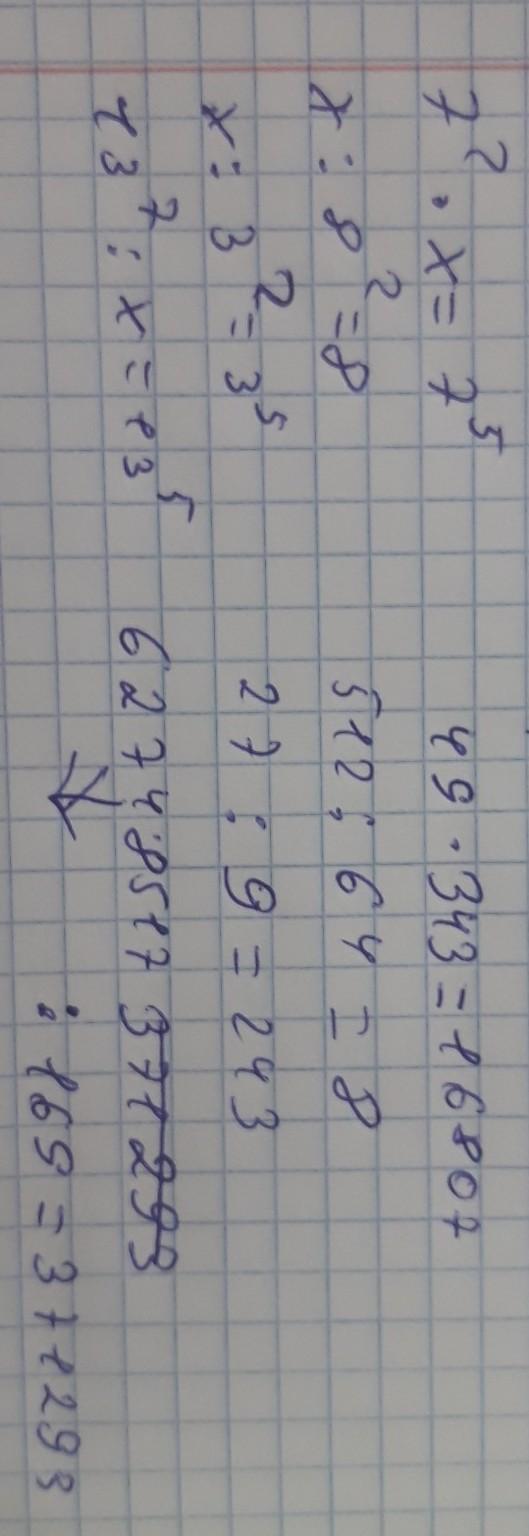 7² · x = 7⁵ 49 · 343 = 16807
x : 8² = 8 512 : 64 = 8
x : 3² = 3⁵ 27 : 9 = 243
13⁷ : x = 13⁵ 62748517 371293
: 169 = 371293